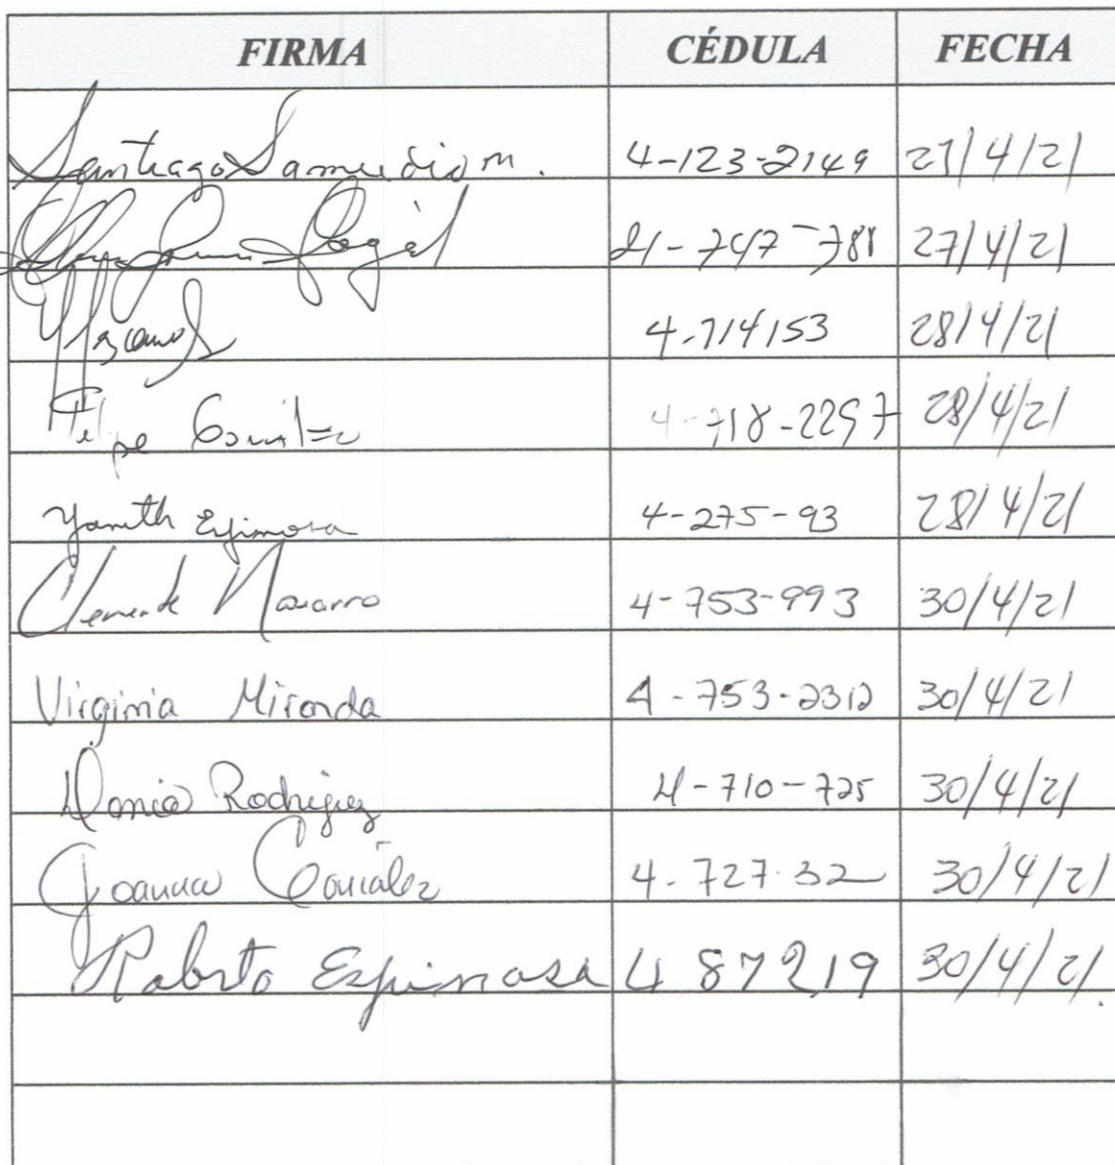 FIRMA CÉDULA FECHA
Santiago Samudio M. 4-123-2149 27/4/21
4-747-788 27/4/21
4-714153 28/4/21
Felipe 4-718-2297 28/4/21
Yamith Espinosa 4-275-93 28/4/21
Clemente Navarro 4-753-993 30/4/21
Virginia Miranda 4-753-2312 30/4/21
Rodriguez 4-710-725 30/4/21
Joanna González 4-727-32 30/4/21
Roberto Espinosa 4 87219 30/4/21